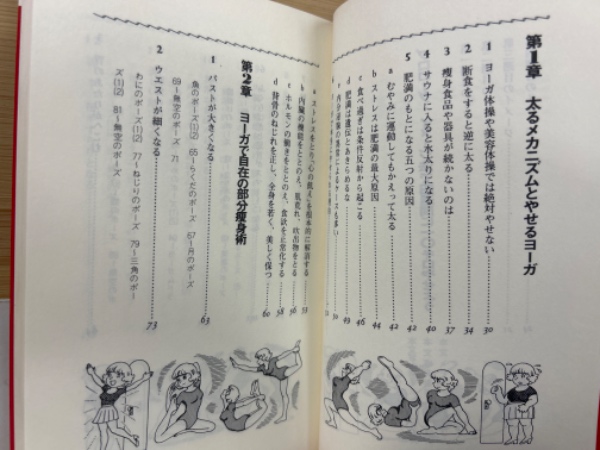 第1章 太るメカニズムとやせるヨーガ
1 ヨーガ体操や美容体操では絶対やせない 30
2 断食をすると逆に太る 34
3 痩身食品や器具が続かないのは 37
4 サウナに入ると水太りになる 40
5 肥満のもとになる五つの原因 42
a むやみに運動してもかえって太る 42
b ストレスは肥満の最大原因 44
c 食べ過ぎは条件反射から起こる 46
d 肥満は遺伝とあきらめるな 49
a ストレスをとり、心の飢えを根本的に解消する 53
b 内臓の機能をととのえ、肌荒れ、吹出物をとる 56
c ホルモンの働きをととのえ、食欲を正常化する 58
d 脊骨のねじれを正し、全身を若く、美しく保つ 60
第2章 ヨーガで自在の部分痩身術
1 バストが大きくなる 63
魚のポーズ(1)(2) 65〜らくだのポーズ 67〜弓のポーズ
69〜無空のポーズ 71
2 ウエストが細くなる 73
わにのポーズ(1)(2) 77〜ねじりのポーズ 79〜三角のポー
ズ(1)(2) 81〜無空のポーズ